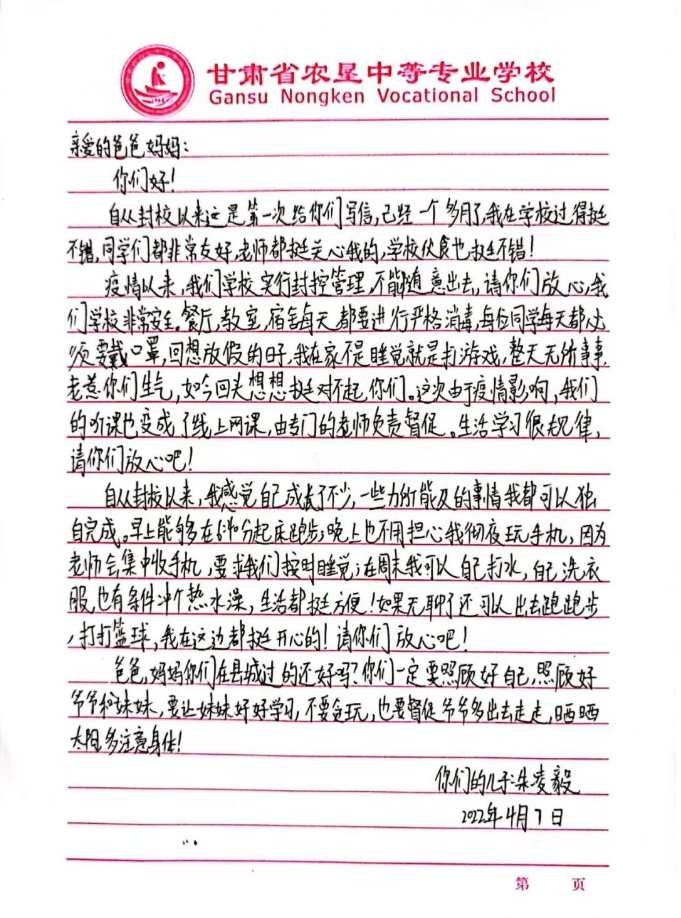 甘肃省农垦中等专业学校
Gansu Nongken Vocational School
亲爱的爸爸妈妈:
你们好!
自从封校以来这是第一次给你们写信,已经一个多月了,我在学校过得挺
不错,同学们都非常友好,老师都挺关心我的,学校伙食也挺不错!
疫情以来,我们学校实行封控管理,不能随意出去,请你们放心,我
们学校非常安全。餐厅,教室,宿舍每天都要进行严格消毒,每位同学每天都必
须要戴口罩,回想放假的日子,我在家不是睡觉就是打游戏,整天无所事事,
老惹你们生气,如今回头想想挺对不起你们。这次由于疫情影响,我们
的听课也变成了线上网课,由专门的老师负责督促。生活学习很规律,
请你们放心吧!
自从封校以来,我感觉自己成长了不少,一些力所能及的事情我都可以独
自完成。早上能够在6:40分起床跑步,晚上也不用担心我彻夜玩手机,因为
老师会集中收手机,要求我们按时睡觉;在周末我可以自己打水,自己洗衣
服,也有条件冲个热水澡,生活都挺方便!如果无聊了还可以出去跑跑步
,打打篮球,我在这边都挺开心的!请你们放心吧!
爸爸,妈妈你们在县城过的还好吗?你们一定要照顾好自己,照顾好
爷爷和妹妹,要让妹妹好好学习,不要贪玩,也要督促爷爷多出去走走,晒晒
太阳,多注意身体!
你们的儿子:朱凌毅
2022年4月7日
第 页